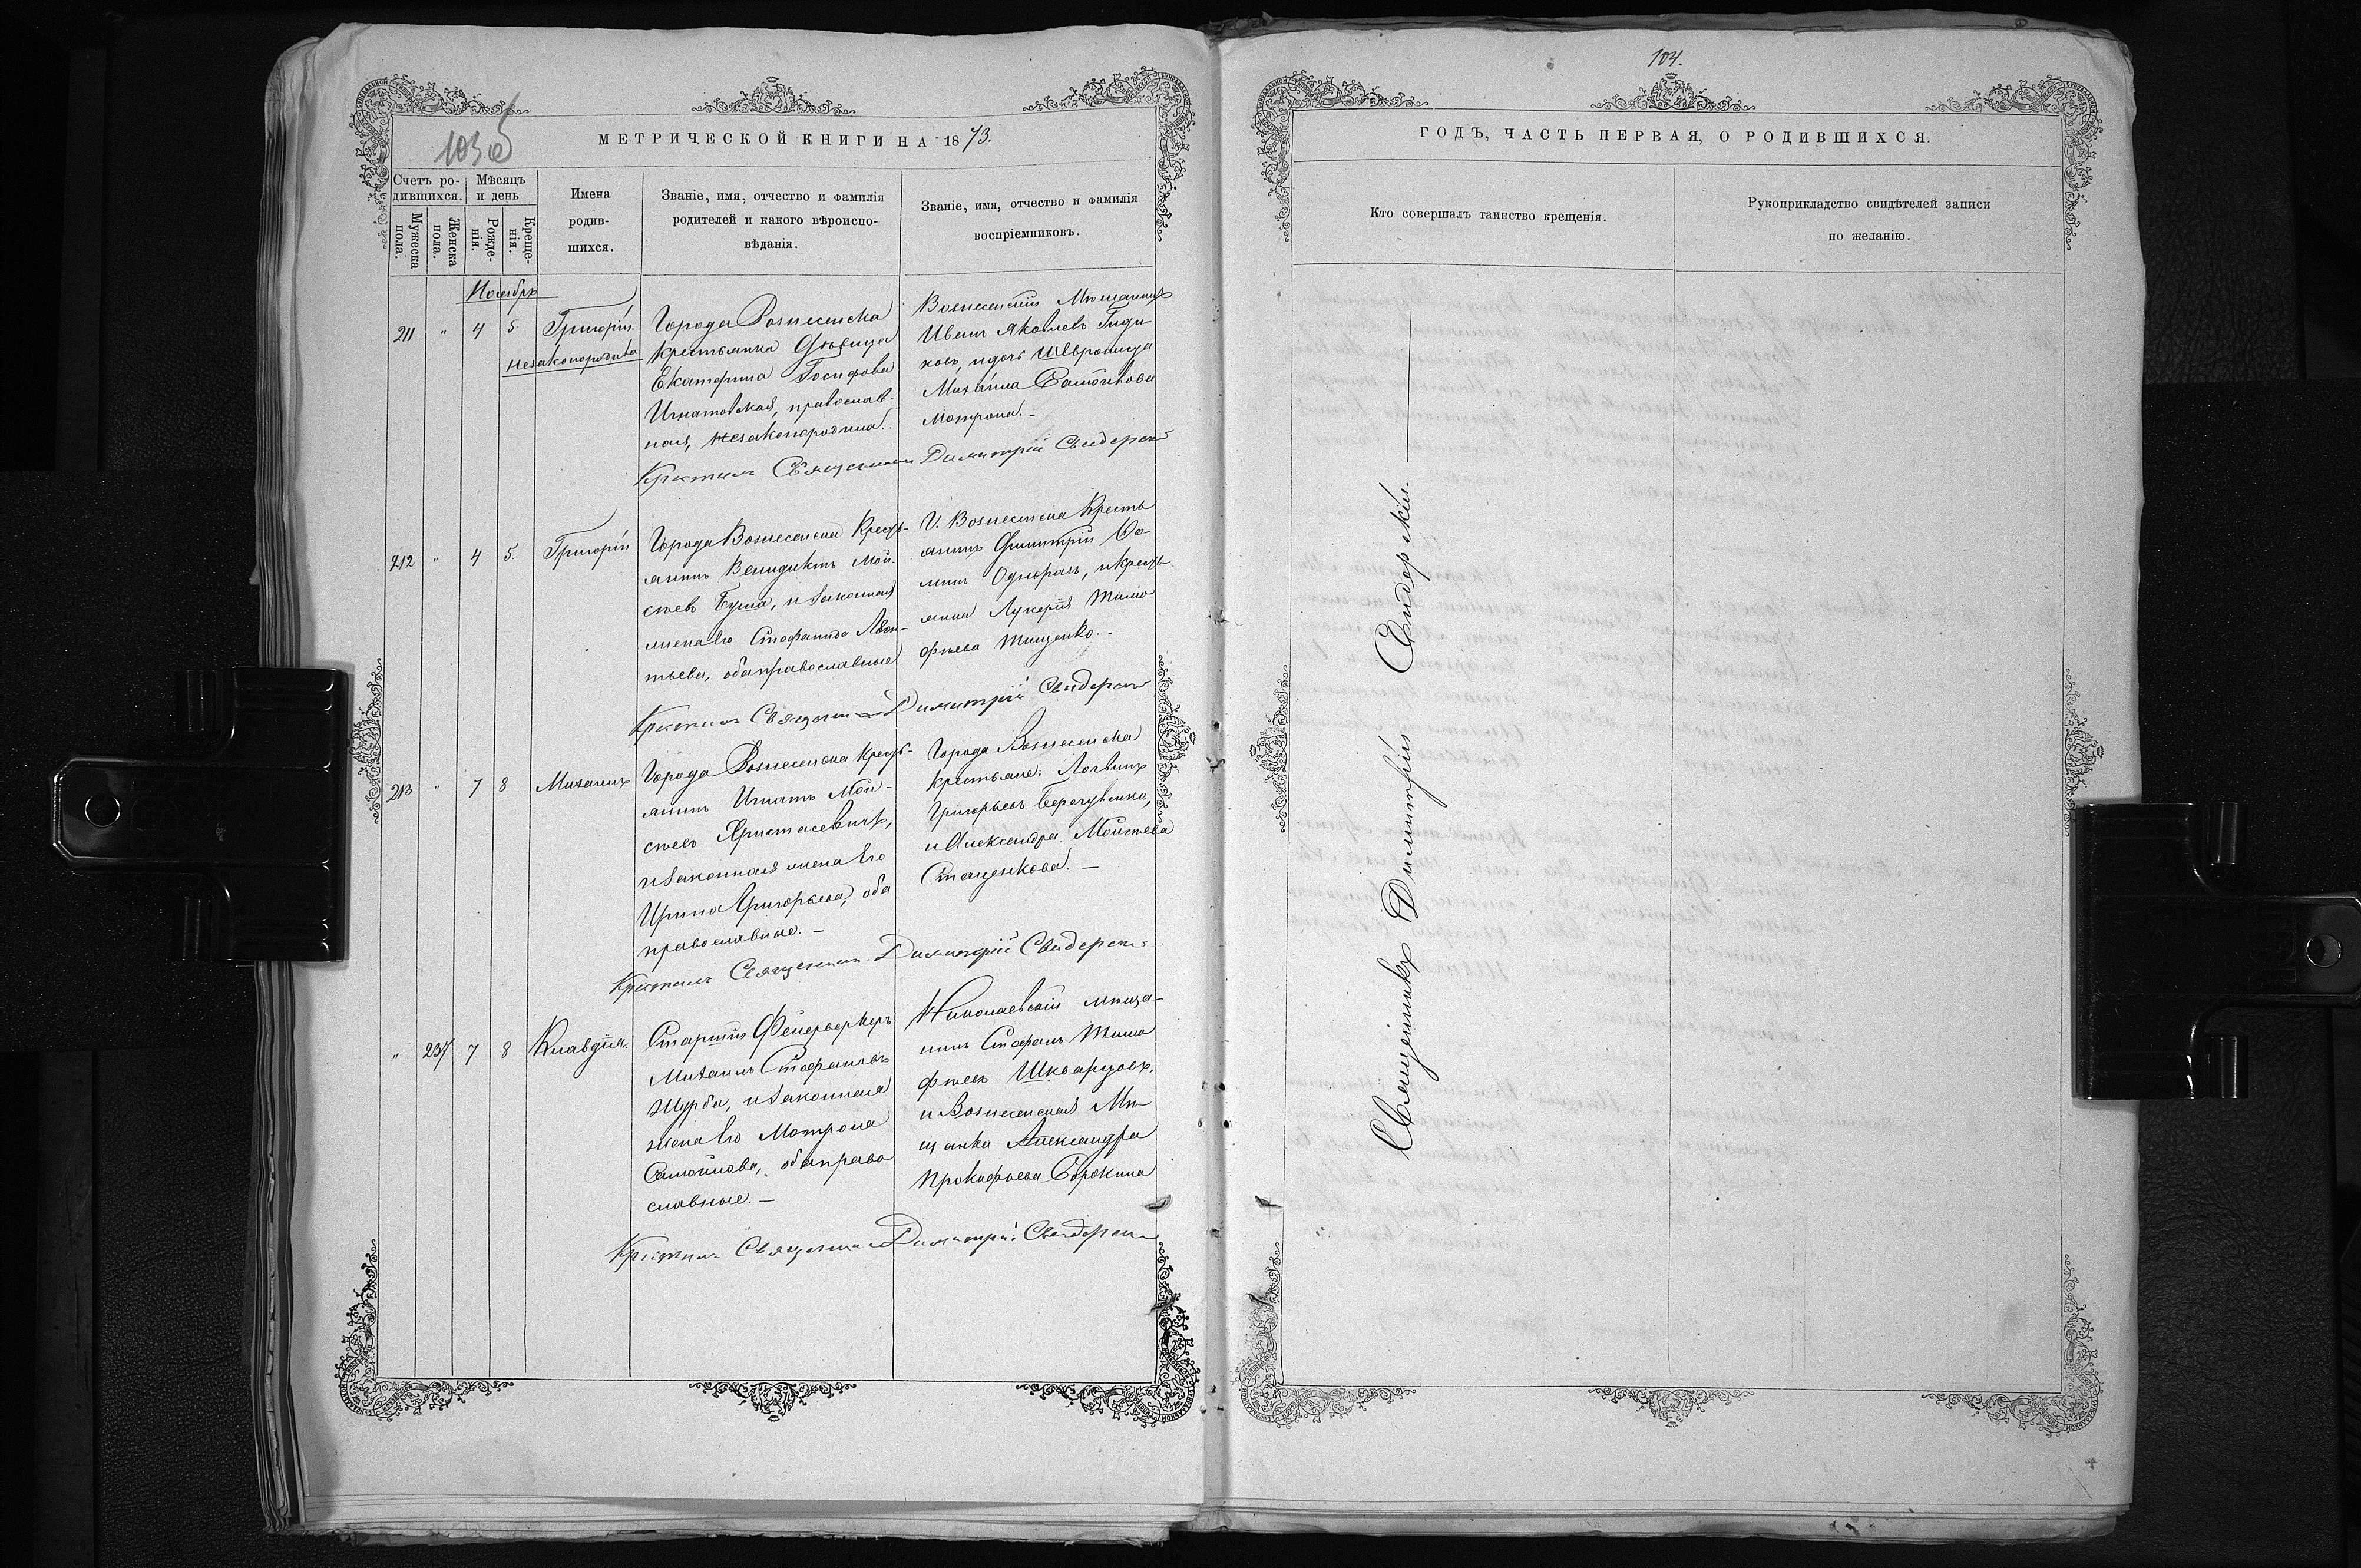 103 об
МЕТРИЧЕСКОЙ КНИГИ НА 1873.
Счетъ ро-
дившихся.
Мѣсяцъ
и день
Мужеска
пола.
Женска
пола.
Рожде-
нія.
Креще-
нія.
Имена
родив-
шихся.
Званіе, имя, отчество и фамилія
родителей и какого вѣроиспо-
вѣданія.
Званіе, имя, отчество и фамилія
воспріемниковъ.
Ноябрь
211 " 4 5. Григорій.
незаконорожд.
Города Вознесенска
крестьянка Дѣвица
Екатерина Іосифова
Игнатовская, православ-
ная, незаконорожд.
Вознесенскій Мѣщанинъ
Иванъ Яковлевъ
ковъ, и дочь
Михаила Самойлова
Мотрона. -
Крестилъ Священникъ Димитрій Свидерскій
212 " 4 5. Григорій
Города Вознесенска Кресть-
янинъ Венидиктъ Мои-
сеевъ Буша, и законная
жена его Стефанида Леон-
тьева, оба православные
Г. Вознесенска Кресть
янинъ Димитрій Фо-
минъ и кресть
янка Лукерія Тимо
фѣева Тищенко. -
Крестилъ Священникъ Димитрій Свидерскій
213 " 7 8 Михаилъ
Города Вознесенска Кресть-
янинъ Игнатъ Мои-
сеевъ Христасевичъ,
и законная жена его
Ирина Григорьева, оба
православные. -
Города Вознесенска
крестьяне: Логвинъ
Григорьевъ
и Александра Моисѣева
Стаценкова. -
Крестилъ Священникъ Димитрій Свидерскій
" 237 7 8 Клавдія.
Старшій Фейерверкеръ
Михаилъ Стефановъ
Журба, и законная
жена его Мотрона
Самойлова, оба право
славные. -
Николаевскій мѣща-
нинъ Стефанъ Тимо
фѣевъ Шкварцовъ,
и Вознесенская Мѣ
щанка Александра
Прокофьева Сорокина
Крестилъ Священникъ Димитрій Свидерскій
104.
ГОДЪ, ЧАСТЬ ПЕРВАЯ, О РОДИВШИХСЯ.
Кто совершалъ таинство крещенія.
Рукоприкладство свидѣтелей записи
по желанію.
Священникъ Димитрій Свидерскій.